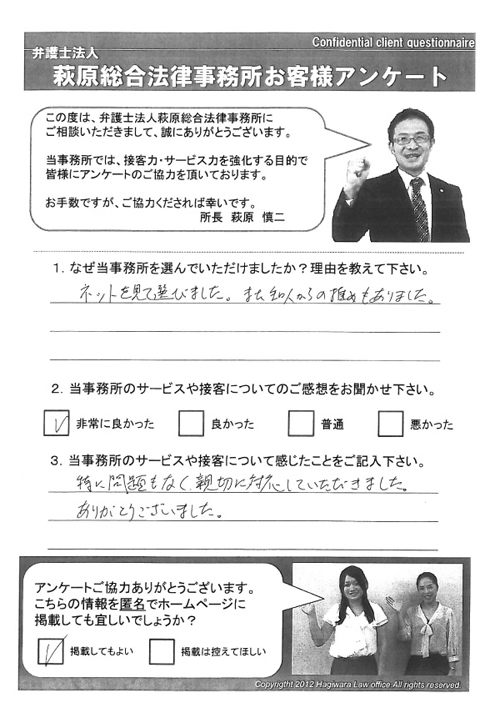 Confidential client questionnaire
弁護士法人
萩原総合法律事務所お客様アンケート
この度は、弁護士法人萩原総合法律事務所に
ご相談いただきまして、誠にありがとうございます。
当事務所では、接客力・サービス力を強化する目的で
皆様にアンケートのご協力を頂いております。
お手数ですが、ご協力くだされば幸いです。
所長 萩原 慎二
1. なぜ当事務所を選んでいただけましたか？理由を教えて下さい。
ネットを見て選びました。また知人からの推めもありました。
2. 当事務所のサービスや接客についてのご感想をお聞かせ下さい。
非常に良かった 良かった 普通 悪かった
3. 当事務所のサービスや接客について感じたことをご記入下さい。
特に問題もなく、親切に対応していただきました。
ありがとうございました。
アンケートご協力ありがとうございます。
こちらの情報を匿名でホームページに
掲載しても宜しいでしょうか？
掲載してもよい 掲載は控えてほしい
Copyrigtht 2012 Hagiwara Law office All rights reserved.